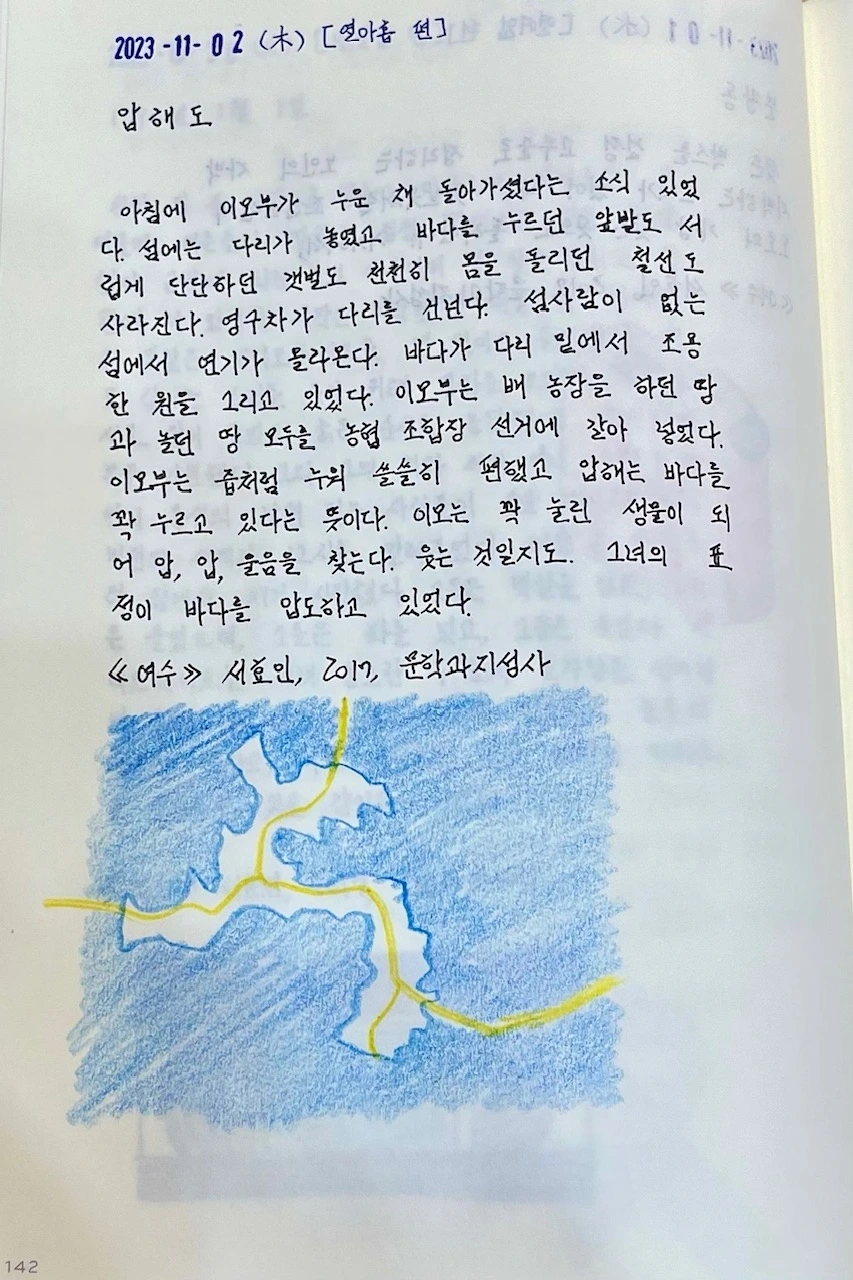 2023-11-02 (木) [열아홉 편]
압해도
아침에 이모부가 누운 채 돌아가셨다는 소식 있었
다. 섬에는 다리가 놓였고 바다를 누르던 앞발도 서
럽게 단단하던 갯벌도 천천히 몸을 돌리던 철선도
사라진다. 영구차가 다리를 건넌다. 섬사람이 없는
섬에서 연기가 올라온다. 바다가 다리 밑에서 조용
한 원을 그리고 있었다. 이모부는 배 농장을 하던 땅
과 놀던 땅 모두를 농협 조합장 선거에 갈아 넣었다.
이모부는 즙처럼 누워 쓸쓸히 편했고 압해는 바다를
꽉 누르고 있다는 뜻이다. 이모는 꽉 눌린 생물이 되
어 압, 압, 울음을 찾는다. 웃는 것일지도. 그녀의 표
정이 바다를 압도하고 있었다.
≪여수≫ 서효인, 2017, 문학과지성사
142